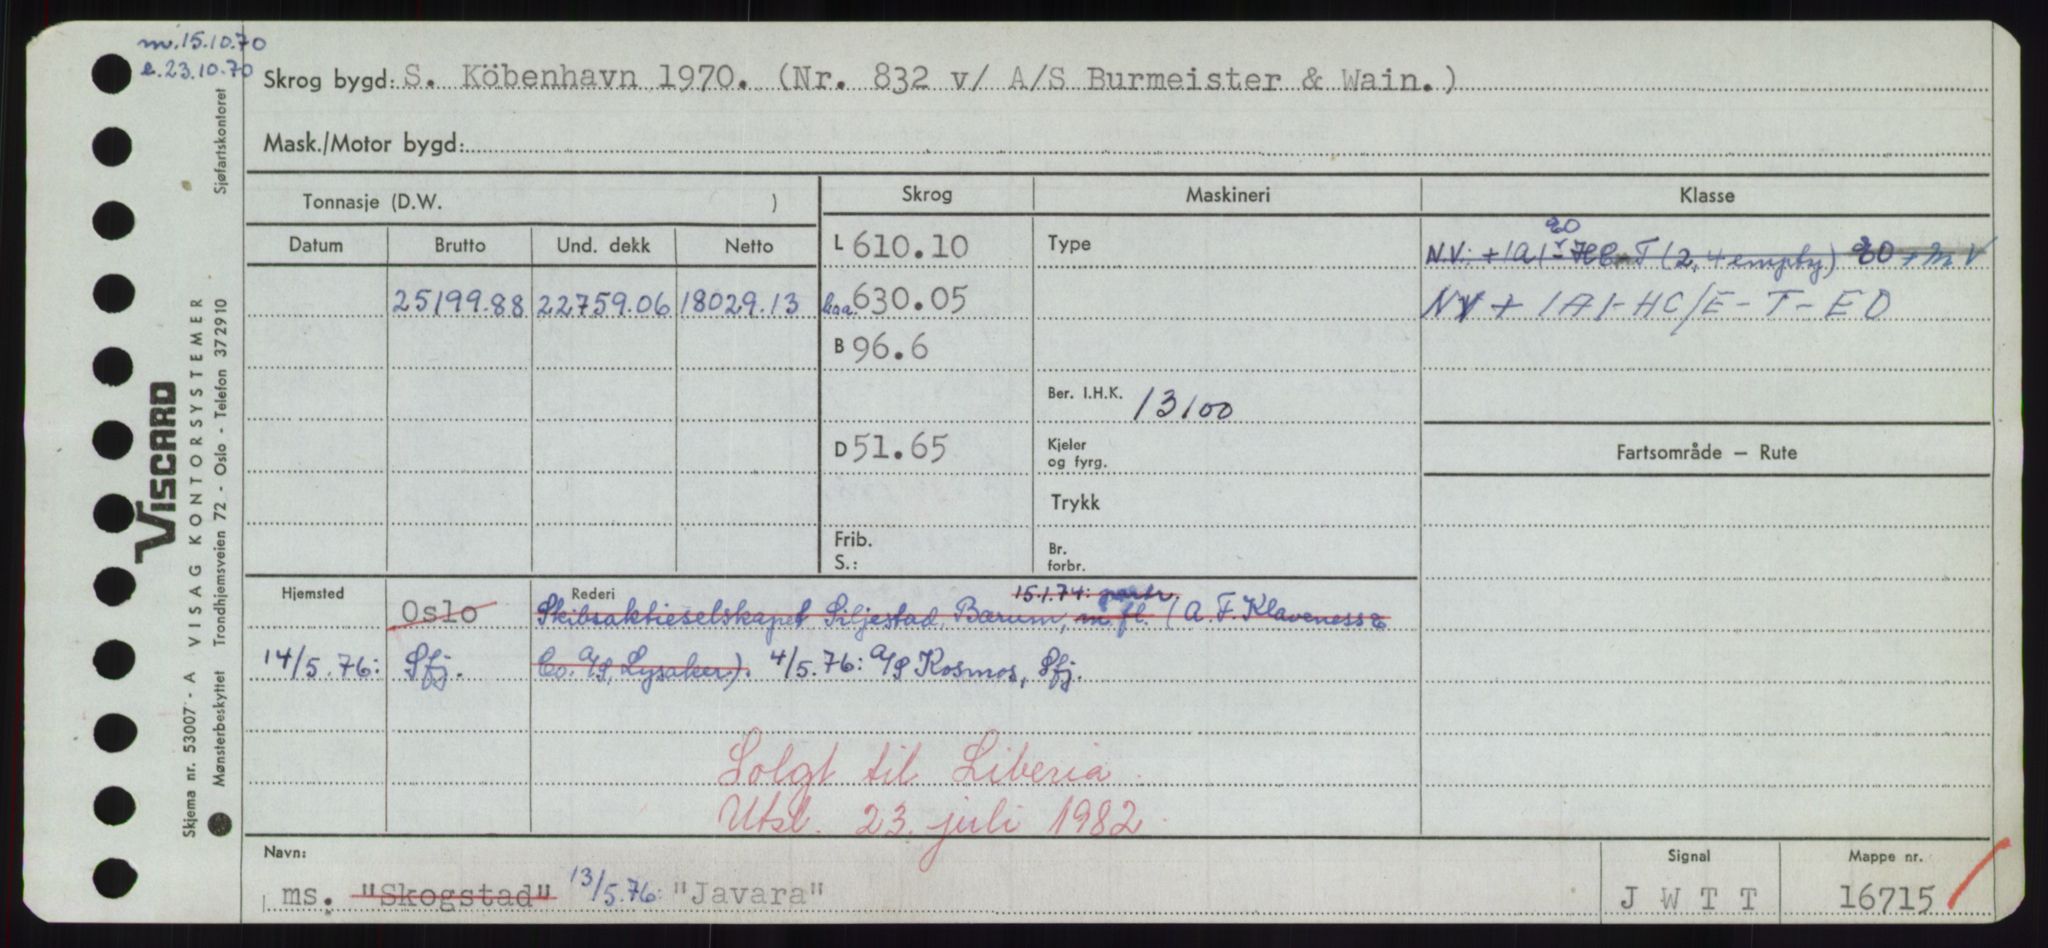 m. 15.10.70
e. 23.10.70
Skrog bygd: S. Köbenhavn 1970. (Nr. 832 v/ A/S Burmeister & Wain.)
Mask./Motor bygd:
Tonnasje (D.W. )
Skrog
Maskineri
Klasse
Datum
Brutto
Und. dekk
Netto
25199.88
22759.06
18029.13
L 610.10
Loa. 630.05
B 96.6
D 51.65
Frib.
S.:
Type
Ber. I.H.K. 13100
Kjeler
og fyrg.
Trykk
Br.
forbr.
N.V: + 1A1 - T (2, 4 empty) E0 + MV
E0
NV + 1A1 - HC/E - T - E0
Fartsområde — Rute
Hjemsted
Rederi
15.1.74: partr.
Oslo
Skibsaktieselskapet Siljestad, Bærum, m.fl. (A. F. Klaveness &
14/5.76: Sfj.
Co. A/S, Lysaker). 4/5.76: A/S Kosmos, Sfj.
Solgt til Liberia.
Utsl. 23. juli 1982.
Navn:
ms. "Skogstad" 13/5.76: "Javara"
Signal
J W T T
Mappe nr.
16715
Sjøfartskontoret
VISCARD
Skjema nr. 53007 - A VISAG KONTORSYSTEMER
Mønsterbeskyttet Trondhjemsveien 72 - Oslo - Telefon 372910